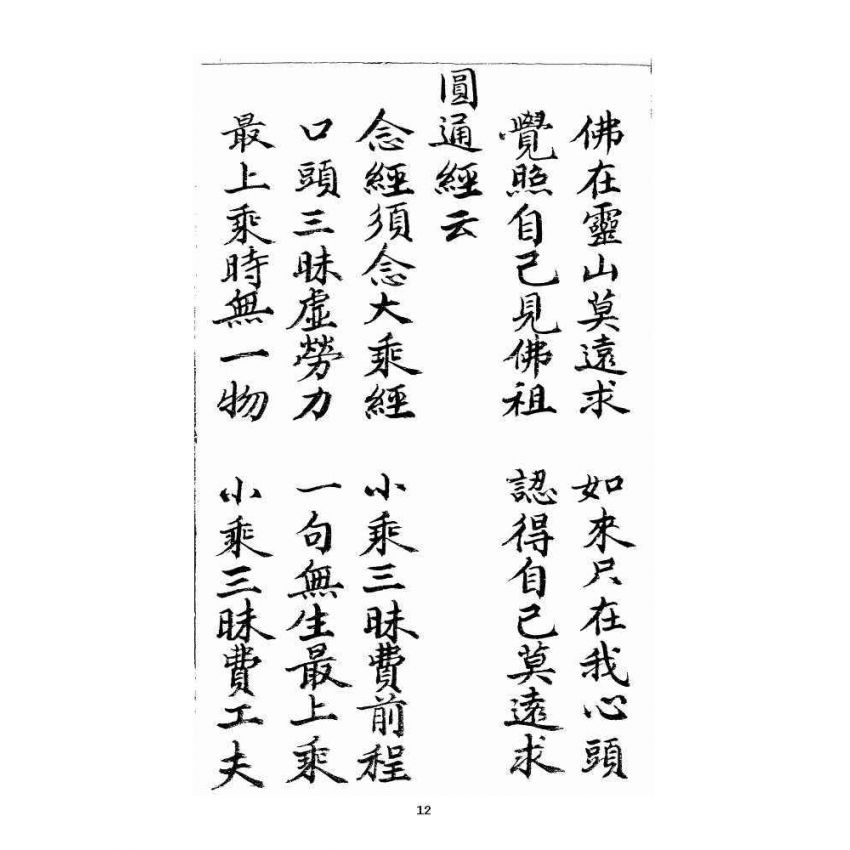 佛在靈山莫遠求　如來尺在我心頭
覺照自己見佛祖　認得自己莫遠求
圓通經云
念經須念大乘經　小乘三昧費前程
口頭三昧虛勞力　一句無生最上乘
最上乘時無一物　小乘三昧費工夫
12